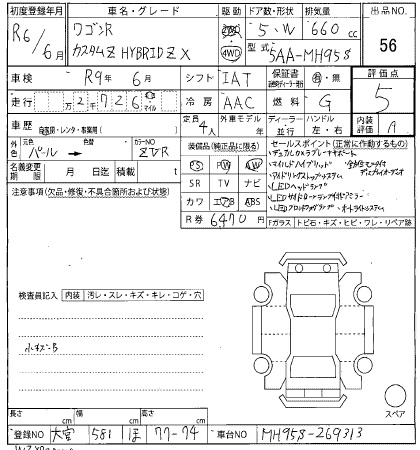 初度登録年月 車名・グレード 駆動 ドア数・形状 排気量 出品NO
R6/6月 ワゴンR カスタムZ HYBRID ZX 4WD 5・W 660cc 56
型式 5AA-MH95S
車検 R9年6月 シフト IAT 保証書 有・無 評価点
走行 万2千726 マイル 冷房 AAC 燃料 G 5
車歴 自家用・レンタ・事業用( ) 定員 4人 外車モデル 年 ディーラー 並行 ハンドル 左・右 内装評価 A
外色 元色 パール → 色替 カラーNO ZVR
装備品(純正品に限る) セールスポイント(正常に作動するもの)
PS PW AW
・デュアルカメラブレーキサポート
名義変更期限 月 日迄 積載 t
・マイルドハイブリッド
SR TV ナビ
・アイドリングストップシステム
注意事項(欠品・修復・不具合箇所および状態)
・LEDヘッドランプ
カワ エアB ABS
R券 6470円
・オートライトシステム
Fガラス トビ石・キズ・ヒビ・ワレ・リペア跡
検査員記入 内装 汚レ・スレ・キズ・キレ・コゲ・穴
小キズ・B
スペア
長さ cm 幅 cm 高さ cm
登録NO 大宮 581 ほ 77-74 車台NO MH95S-269313